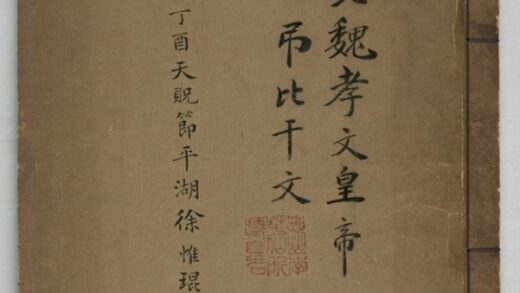 魏孝文皇帝
吊比干文
丁酉天貺節平湖徐惟琨